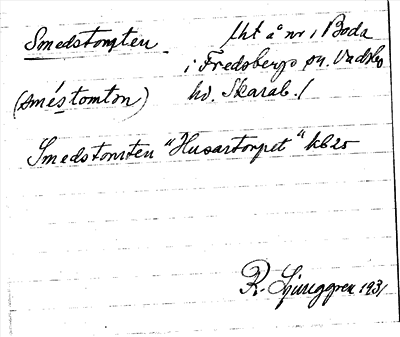 Smedstomten lht å nr 1 Boda
i Fredsbergs sn. Vadsbo
(smés̲tomton) hd. Skarab. l
Smedstomten "Husartorpet" kb 25
R. Ljunggren 1931